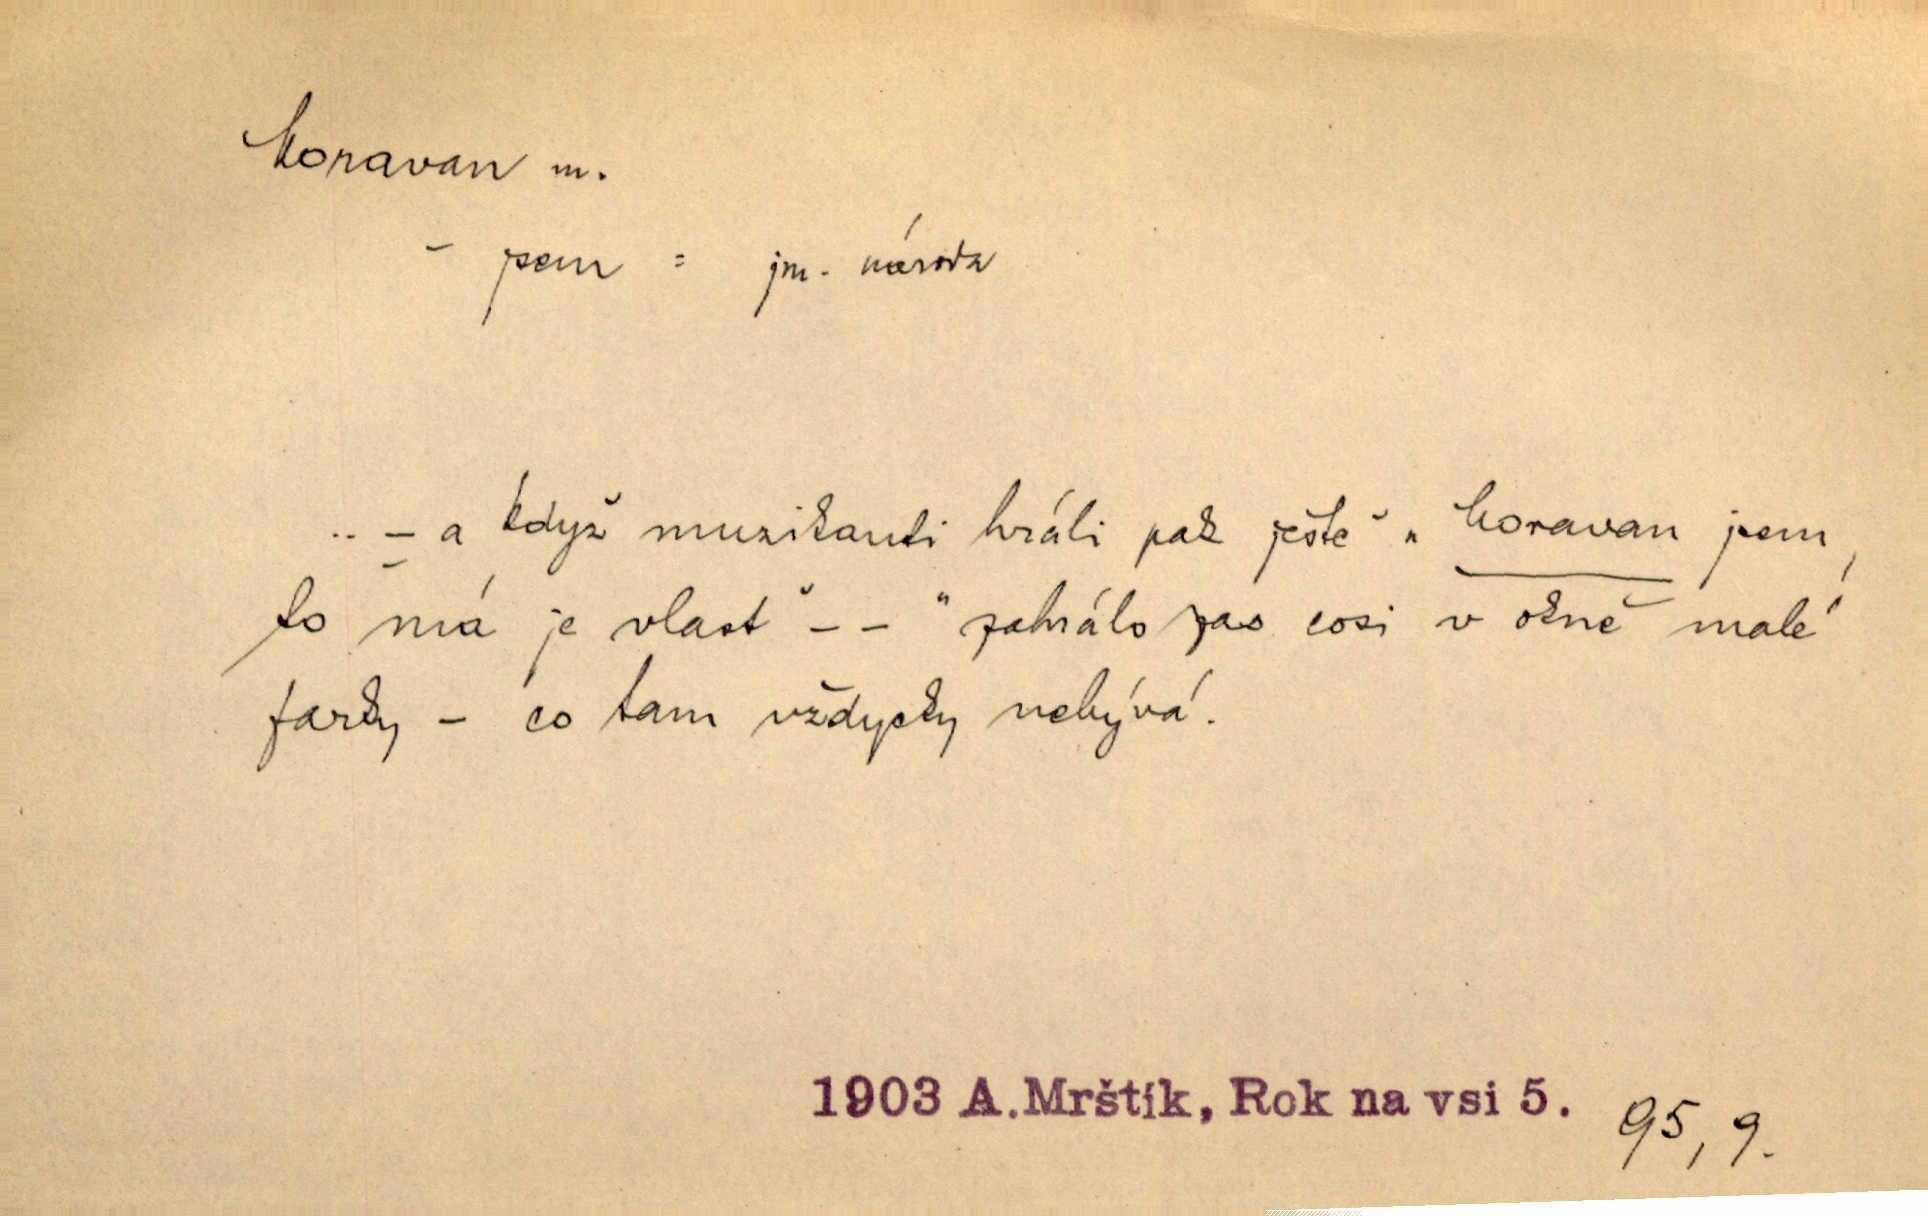 Moravan m.
– jsem = jm. národa
.. – a když muzikanti hráli pak ještě „Moravan jsem,
to má je vlast – – " zahrálo zas cosi v okně malé
farky – co tam vždycky nebývá.
1903 A.Mrštík, Rok na vsi 5. 95, 9.